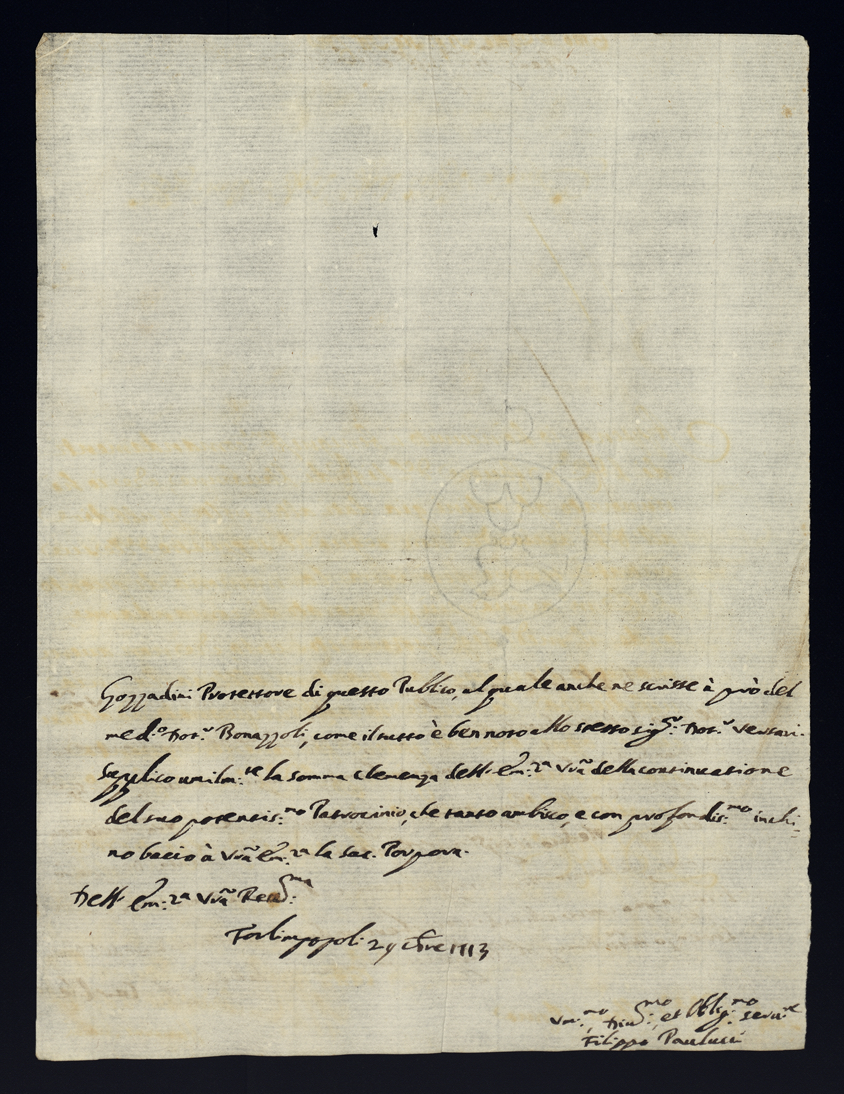 Gozzadini Protettore di questo Publico, al quale anche ne scrisse à prò del
med.º Dot.r Bonazzoli, come il tutto è ben noto allo stesso Sig.r Dot.r
Supplico umilm.te la somma Clemenza dell' Em.za Vrã della continuatione
del suo potentis.mo Patrocinio, che tanto ambisco, e con profondis.mo inchi-
no bacio à Vrã Em.za la Sac. Porpora.
Dell' Em.za Vrã Reu.ma
Forlimpopoli 29 1713
Vmi.mo, Diu.mo, et Oblig.mo Seru.re
Filippo Paulucci